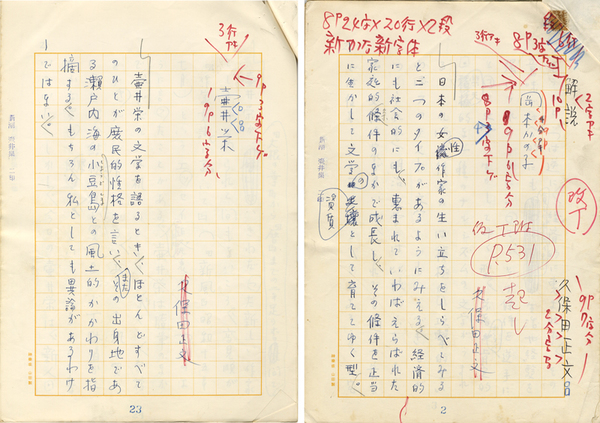 8P24字×20行×2段
新かな新字体
解説
岡本かの子
改丁
P.531
起し
久保田正文
久保田正文
日本の女性作家の生い立ちをしらべてみる
と二つのタイプがあるようにみえる。経済的
にも社会的にも、恵まれていわばえらばれた
家庭的條件のなかで成長し、その條件を正当
に生かして文学の資質として育ててゆく型。
2
3行
壷井栄
久保田正文
壷井栄の文学を語るとき、ほとんどすべて
のひとが庶民的性格を言い、またその出身地であ
る瀬戸内海の小豆島との風土的かかわりを指
摘する。もちろん私としても異論があるわけ
ではない。
23